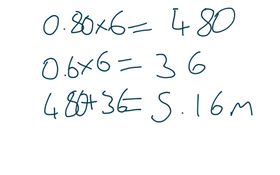 0.80×6=480
0.6×6=36
480+36=5.16m